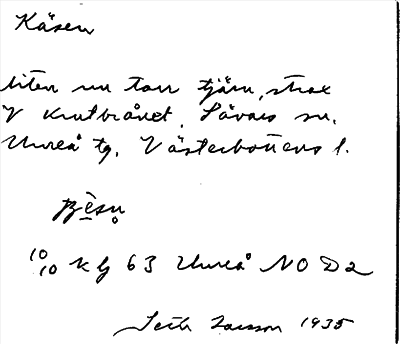 Käsen
liten nu torr tjärn, strax
V Krutbrånet, Sävars sn.
Umeå tg. Västerbottens l.
10/10 kbl 63 Umeå NO D2
Seth Larsson 1935